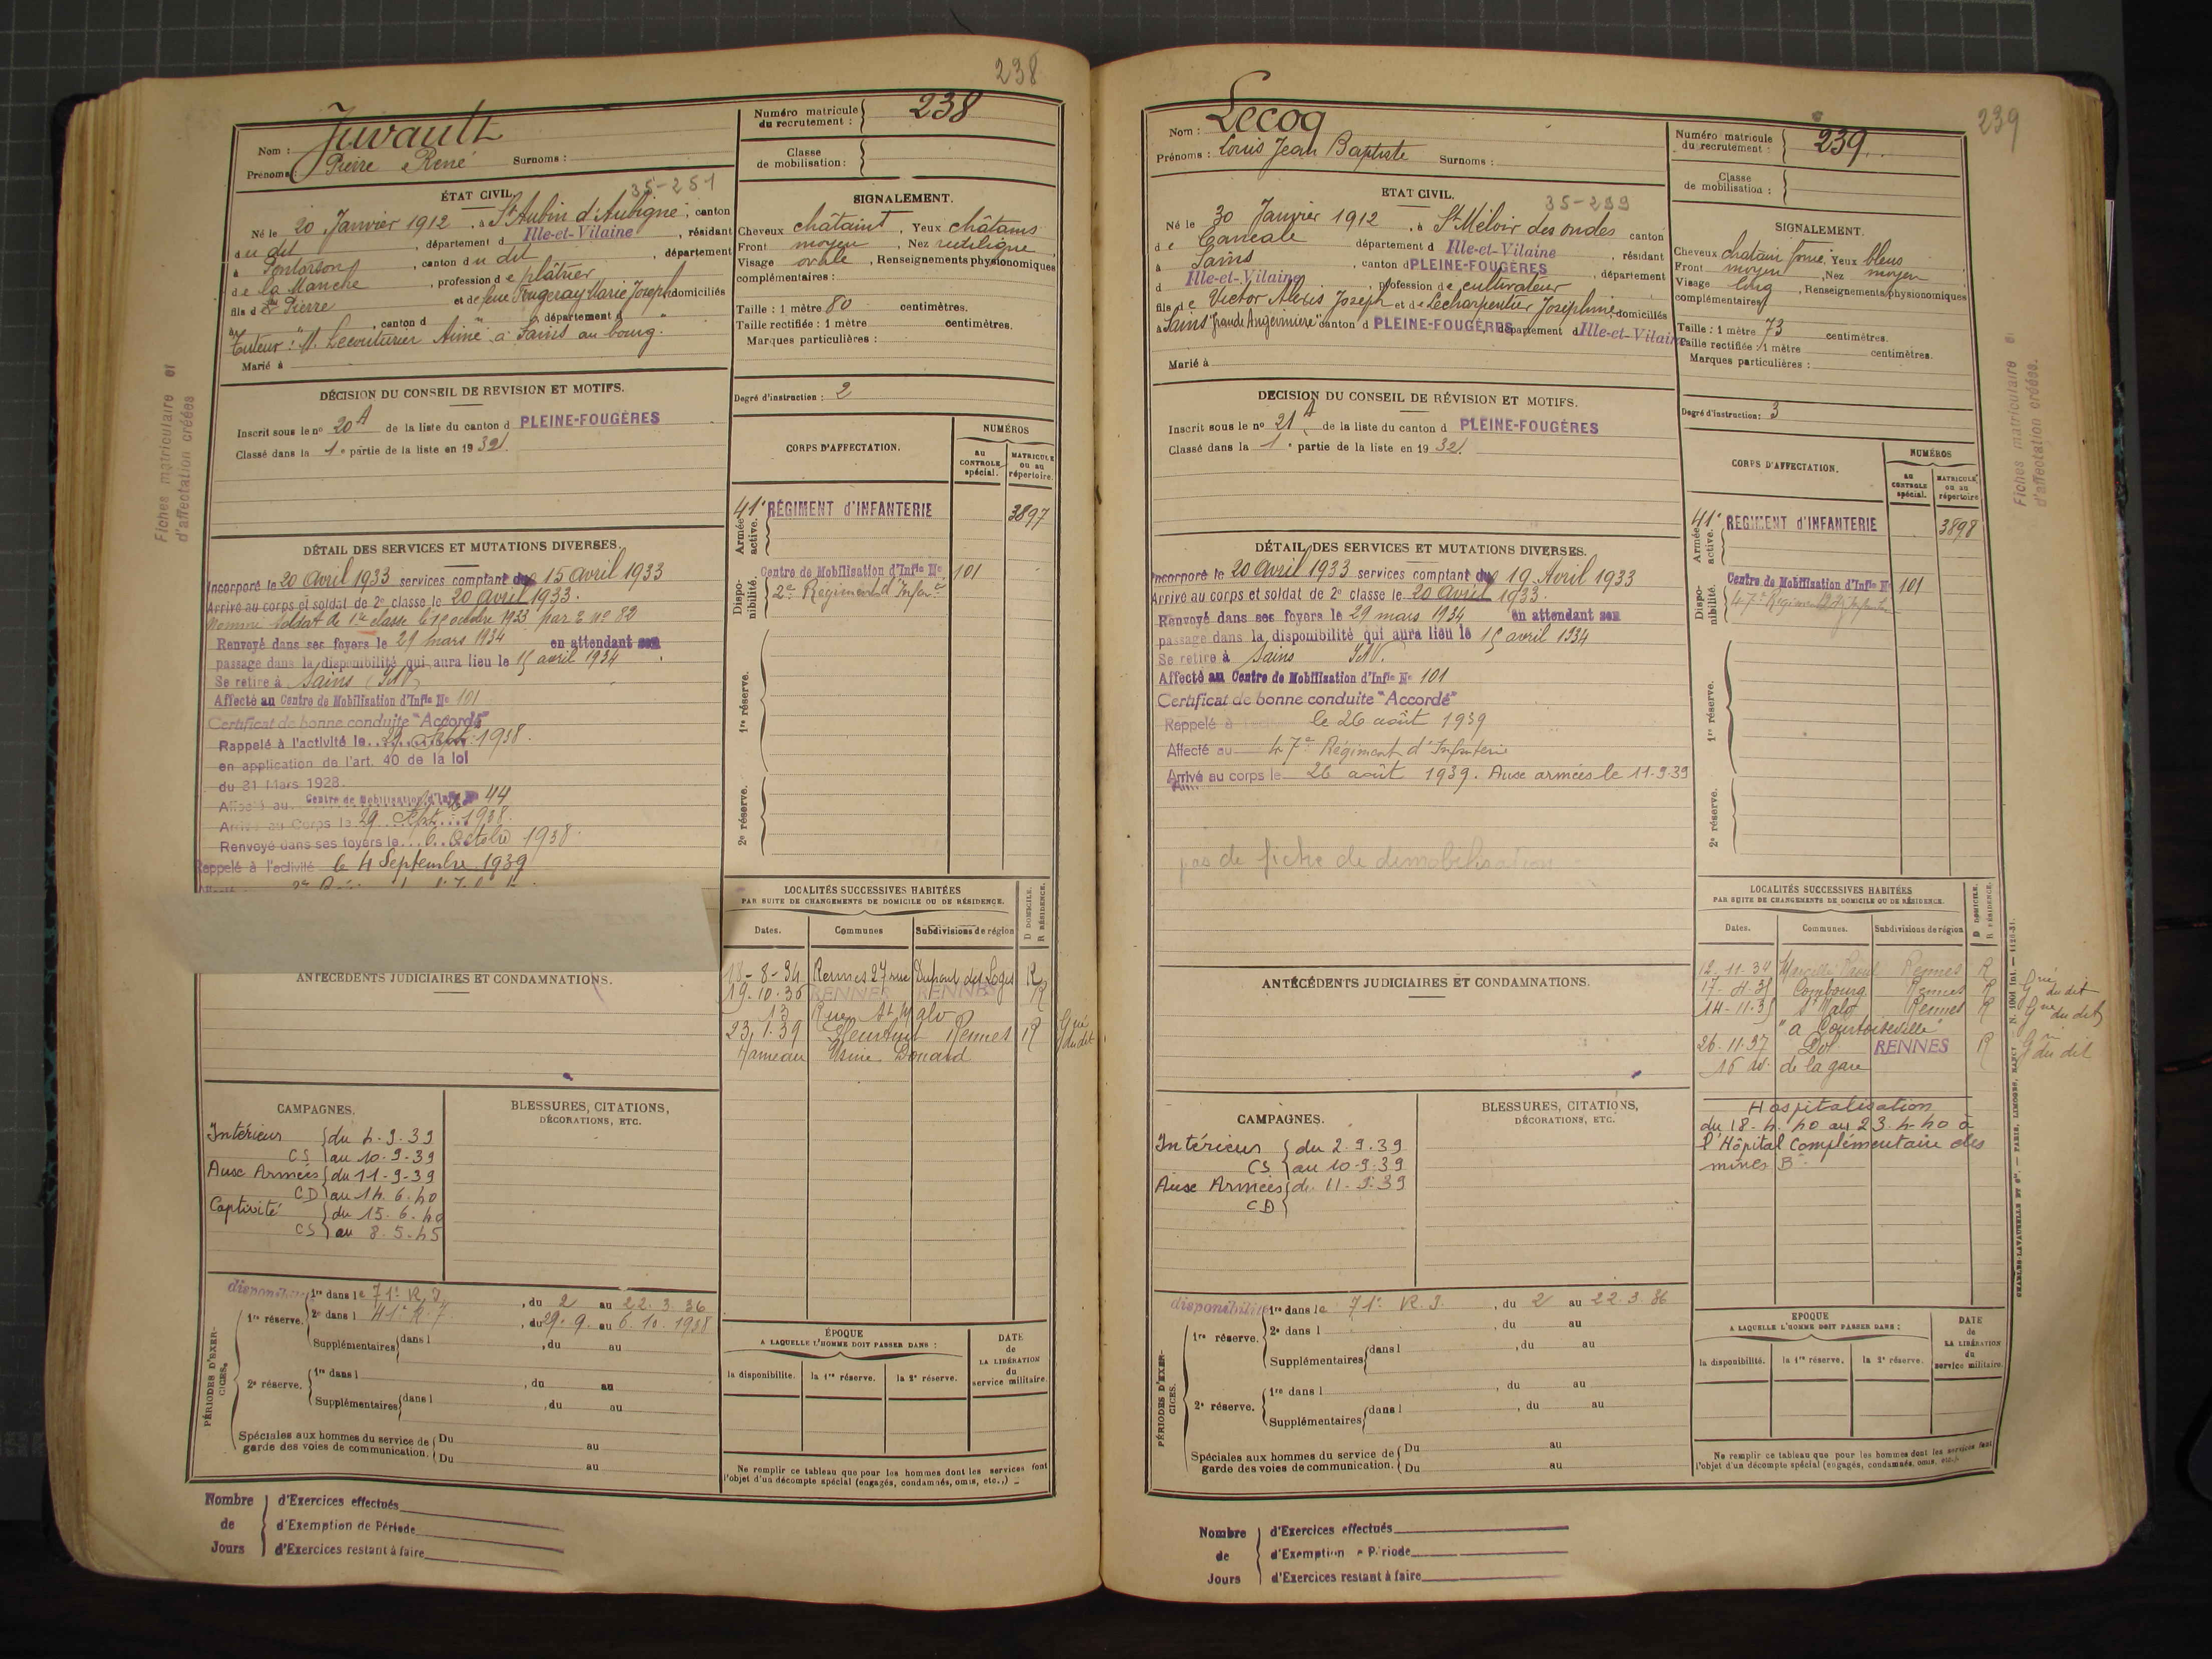 238
Nom : Juvault
Prénoms : Pierre René Surnoms :
Numéro matricule du recrutement : 238
Classe de mobilisation :
ÉTAT CIVIL.
35-251
Né le 20 Janvier 1912, à St Aubin d'Aubigné, canton
du dit, département d Ille-et-Vilaine, résidant
à Pontorson, canton du dit, département
de la Manche, profession de plâtrier
fils de Pierre et de feue Fougeray Marie Joseph domiciliés
à , canton d , département d
Tuteur : "M. Lecouturier Aimé" à Sains au bourg.
Marié à
SIGNALEMENT.
Cheveux châtaint, Yeux châtains
Front moyen, Nez rectiligne
Visage ovale, Renseignements physionomiques
complémentaires :
Taille : 1 mètre 80 centimètres.
Taille rectifiée : 1 mètre centimètres.
Marques particulières :
Degré d'instruction : 2
DÉCISION DU CONSEIL DE REVISION ET MOTIFS.
Inscrit sous le no 20 A de la liste du canton d PLEINE-FOUGÈRES
Classé dans la 1e partie de la liste en 1932.
CORPS D'AFFECTATION.
NUMÉROS
au CONTROLE spécial.
MATRICULE ou au répertoire.
Armée active.
41e RÉGIMENT d'INFANTERIE 3897
Disponibilité.
Centre de Mobilisation d'Infie No 101
2e Régiment d'Infrie
1re réserve.
2e réserve.
DÉTAIL DES SERVICES ET MUTATIONS DIVERSES.
Incorporé le 20 Avril 1933 services comptant du 15 Avril 1933
Arrivé au corps et soldat de 2e classe le 20 avril 1933.
Nommé soldat de 1re classe le 15 octobre 1933 par no 82
Renvoyé dans ses foyers le 29 mars 1934 en attendant son
passage dans la disponibilité qui aura lieu le 15 avril 1934.
Se retire à Sains (I&V)
Affecté au Centre de Mobilisation d'Infie No 101
Certificat de bonne conduite "Accordé"
Rappelé à l'activité le 29 Sept. 1938.
en application de l'art. 40 de la loi
du 31 Mars 1928.
Affecté au Centre de Mobilisation d'Infie No 44
Arrivé au Corps le 29 Sept. 1938.
Renvoyé dans ses foyers le 6 Octobre 1938.
Rappelé à l'activité le 4 Septembre 1939
LOCALITÉS SUCCESSIVES HABITÉES
PAR SUITE DE CHANGEMENTS DE DOMICILE OU DE RÉSIDENCE.
D DOMICILE. R RÉSIDENCE.
Dates. Communes Subdivisions de région
13-8-34 Rennes 27 rue Dupont des Loges R
19.10.36 RENNES RENNES R
13 Rue St Malo
23.1.39 Pleurtuit Rennes R
Hameau Usine Douard
Gné du dit
ANTÉCÉDENTS JUDICIAIRES ET CONDAMNATIONS.
CAMPAGNES.
Intérieur du 4.9.39
CS au 10.9.39
Aux Armées du 11-9-39
CD au 14.6.40
Captivité du 15.6.40
CS au 8.5.45
BLESSURES, CITATIONS, DÉCORATIONS, ETC.
PÉRIODES D'EXERCICES.
disponibilité
1re réserve.
1re dans le 71e R.I., du 2 au 22.3.36
2e dans l 41e R.I., du 29.9. au 6.10.1938
Supplémentaires dans l , du au
2e réserve.
1re dans l , du au
Supplémentaires dans l , du au
Spéciales aux hommes du service de garde des voies de communication. Du au
Du au
ÉPOQUE
A LAQUELLE L'HOMME DOIT PASSER DANS :
la disponibilité. la 1re réserve. la 2e réserve.
DATE de LA LIBÉRATION du service militaire.
Ne remplir ce tableau que pour les hommes dont les services font
l'objet d'un décompte spécial (engagés, condamnés, omis, etc.,)
Nombre de Jours
d'Exercices effectués
d'Exemption de Période
d'Exercices restant à faire
Fiches matriculaire et
d'affectation créées
239
Nom : Lecoq
Prénoms : Louis Jean Baptiste Surnoms :
Numéro matricule du recrutement : 239.
Classe de mobilisation :
ETAT CIVIL.
35-299
Né le 30 Janvier 1912, à St Méloir des ondes canton
de Cancale département d Ille-et-Vilaine, résidant
à Sains, canton d PLEINE-FOUGÈRES, département
d Ille-et-Vilaine, profession de cultivateur
fils de Victor Alexis Joseph et de Lecharpentier Joséphine domiciliés
à Sains "Grande Angevinière" canton d PLEINE-FOUGÈRES département d Ille-et-Vilaine
Marié à
SIGNALEMENT.
Cheveux chatain foncé, Yeux bleus
Front moyen, Nez moyen
Visage long, Renseignements physionomiques
complémentaires
Taille : 1 mètre 73 centimètres.
Taille rectifiée : 1 mètre centimètres.
Marques particulières :
Degré d'instruction : 3
DECISION DU CONSEIL DE RÉVISION ET MOTIFS.
Inscrit sous le no 21 A de la liste du canton d PLEINE-FOUGÈRES
Classé dans la 1e partie de la liste en 1932.
CORPS D'AFFECTATION.
NUMÉROS
au CONTROLE spécial.
MATRICULE ou au répertoire
Armée active.
41e REGIMENT d'INFANTERIE 3898
Disponibilité.
Centre de Mobilisation d'Infie No 101
47e Régiment d'Infanterie
1re réserve.
2e réserve.
DÉTAIL DES SERVICES ET MUTATIONS DIVERSES.
Incorporé le 20 Avril 1933 services comptant du 19 Avril 1933
Arrivé au corps et soldat de 2e classe le 20 avril 1933.
Renvoyé dans ses foyers le 29 mars 1934 en attendant son
passage dans la disponibilité qui aura lieu le 15 avril 1934
Se retire à Sains I&V.
Affecté au Centre de Mobilisation d'Infie No 101
Certificat de bonne conduite "Accordé"
Rappelé à le 26 août 1939
Affecté au 47e Régiment d'Infanterie
Arrivé au corps le 26 août 1939. Aux armées le 11-9-39
pas de fiche de démobilisation
LOCALITÉS SUCCESSIVES HABITÉES
PAR SUITE DE CHANGEMENTS DE DOMICILE OU DE RÉSIDENCE.
D DOMICILE. R RÉSIDENCE.
Dates. Communes. Subdivisions de région
12.11.34 Marcillé Raoul Rennes R
17-4.35 Combourg Rennes R Gné du dit
14-11.35 St Malo Rennes R Gné du dit
"à Courtoiseville"
26.11.37 Dol RENNES R Gné du dit
16 av. de la gare
Hospitalisation
du 18.4.40 au 23.4.40 à
l'Hôpital Complémentaire des
mines B
ANTÉCÉDENTS JUDICIAIRES ET CONDAMNATIONS.
CAMPAGNES.
Intérieur du 2.9.39
CS au 10-9.39
Aux Armées du 11-9.39
CD
BLESSURES, CITATIONS, DÉCORATIONS, ETC.
PÉRIODES D'EXERCICES.
disponibilité
1re réserve.
1re dans le 71e R.I., du 2 au 22.3.36
2e dans l , du au
Supplémentaires dans l , du au
2e réserve.
1re dans l , du au
Supplémentaires dans l , du au
Spéciales aux hommes du service de garde des voies de communication. Du au
Du au
EPOQUE
A LAQUELLE L'HOMME DOIT PASSER DANS :
la disponibilité. la 1re réserve. la 2e réserve.
DATE de LA LIBÉRATION du service militaire.
Ne remplir ce tableau que pour les hommes dont les services font
l'objet d'un décompte spécial (engagés, condamnés, omis, etc.).
Nombre de Jours
d'Exercices effectués
d'Exemption Période
d'Exercices restant à faire
Fiches matriculaire et
d'affectation créées.
CHARLES-LAVAUZELLE ET Cie. — PARIS, LIMOGES, NANCY